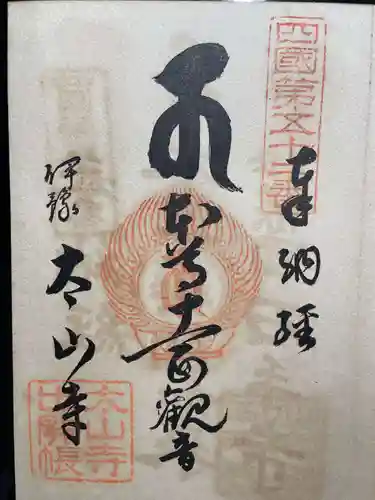 四國第五十二番
奉納経
本尊十一面觀音
伊豫
太山寺
太山寺